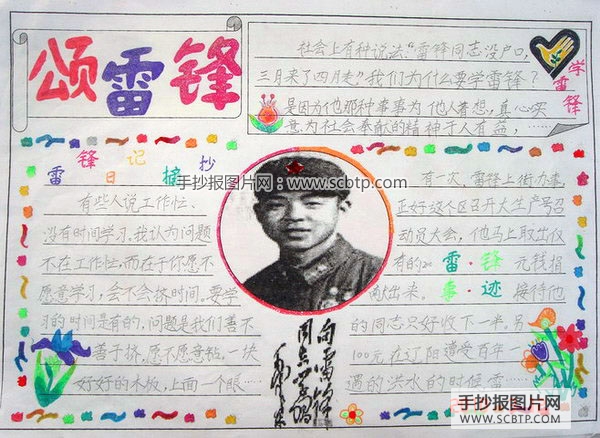 颂雷锋
社会上有种说法:“雷锋同志没户口,
三月来了四月走”我们为什么要学雷锋?
是因为他那种事事为他人着想,真心实
意为社会奉献的精神于人有益,……
学雷锋
雷锋日记摘抄
有些人说工作忙、
没有时间学习,我认为问题
不在工作忙,而在于你愿不
愿意学习,会不会挤时间。要学
习的时间是有的,问题是我们善不
善于挤,愿不愿意钻,一块
好好的木板,上面一个眼……
手抄报图片网:www.scbtp.com
向雷锋
同志学习
毛泽东
雷锋事迹
有一次,雷锋上街办事,
正好这个区召开大生产号召
动员大会,他马上取出仅
有的200元钱捐
献出来。接待他
的同志只好收下一半。另
100元在辽阳遭受百年
遇的洪水的时候雷……
手抄报图片网
WWW.SCBTP.COM